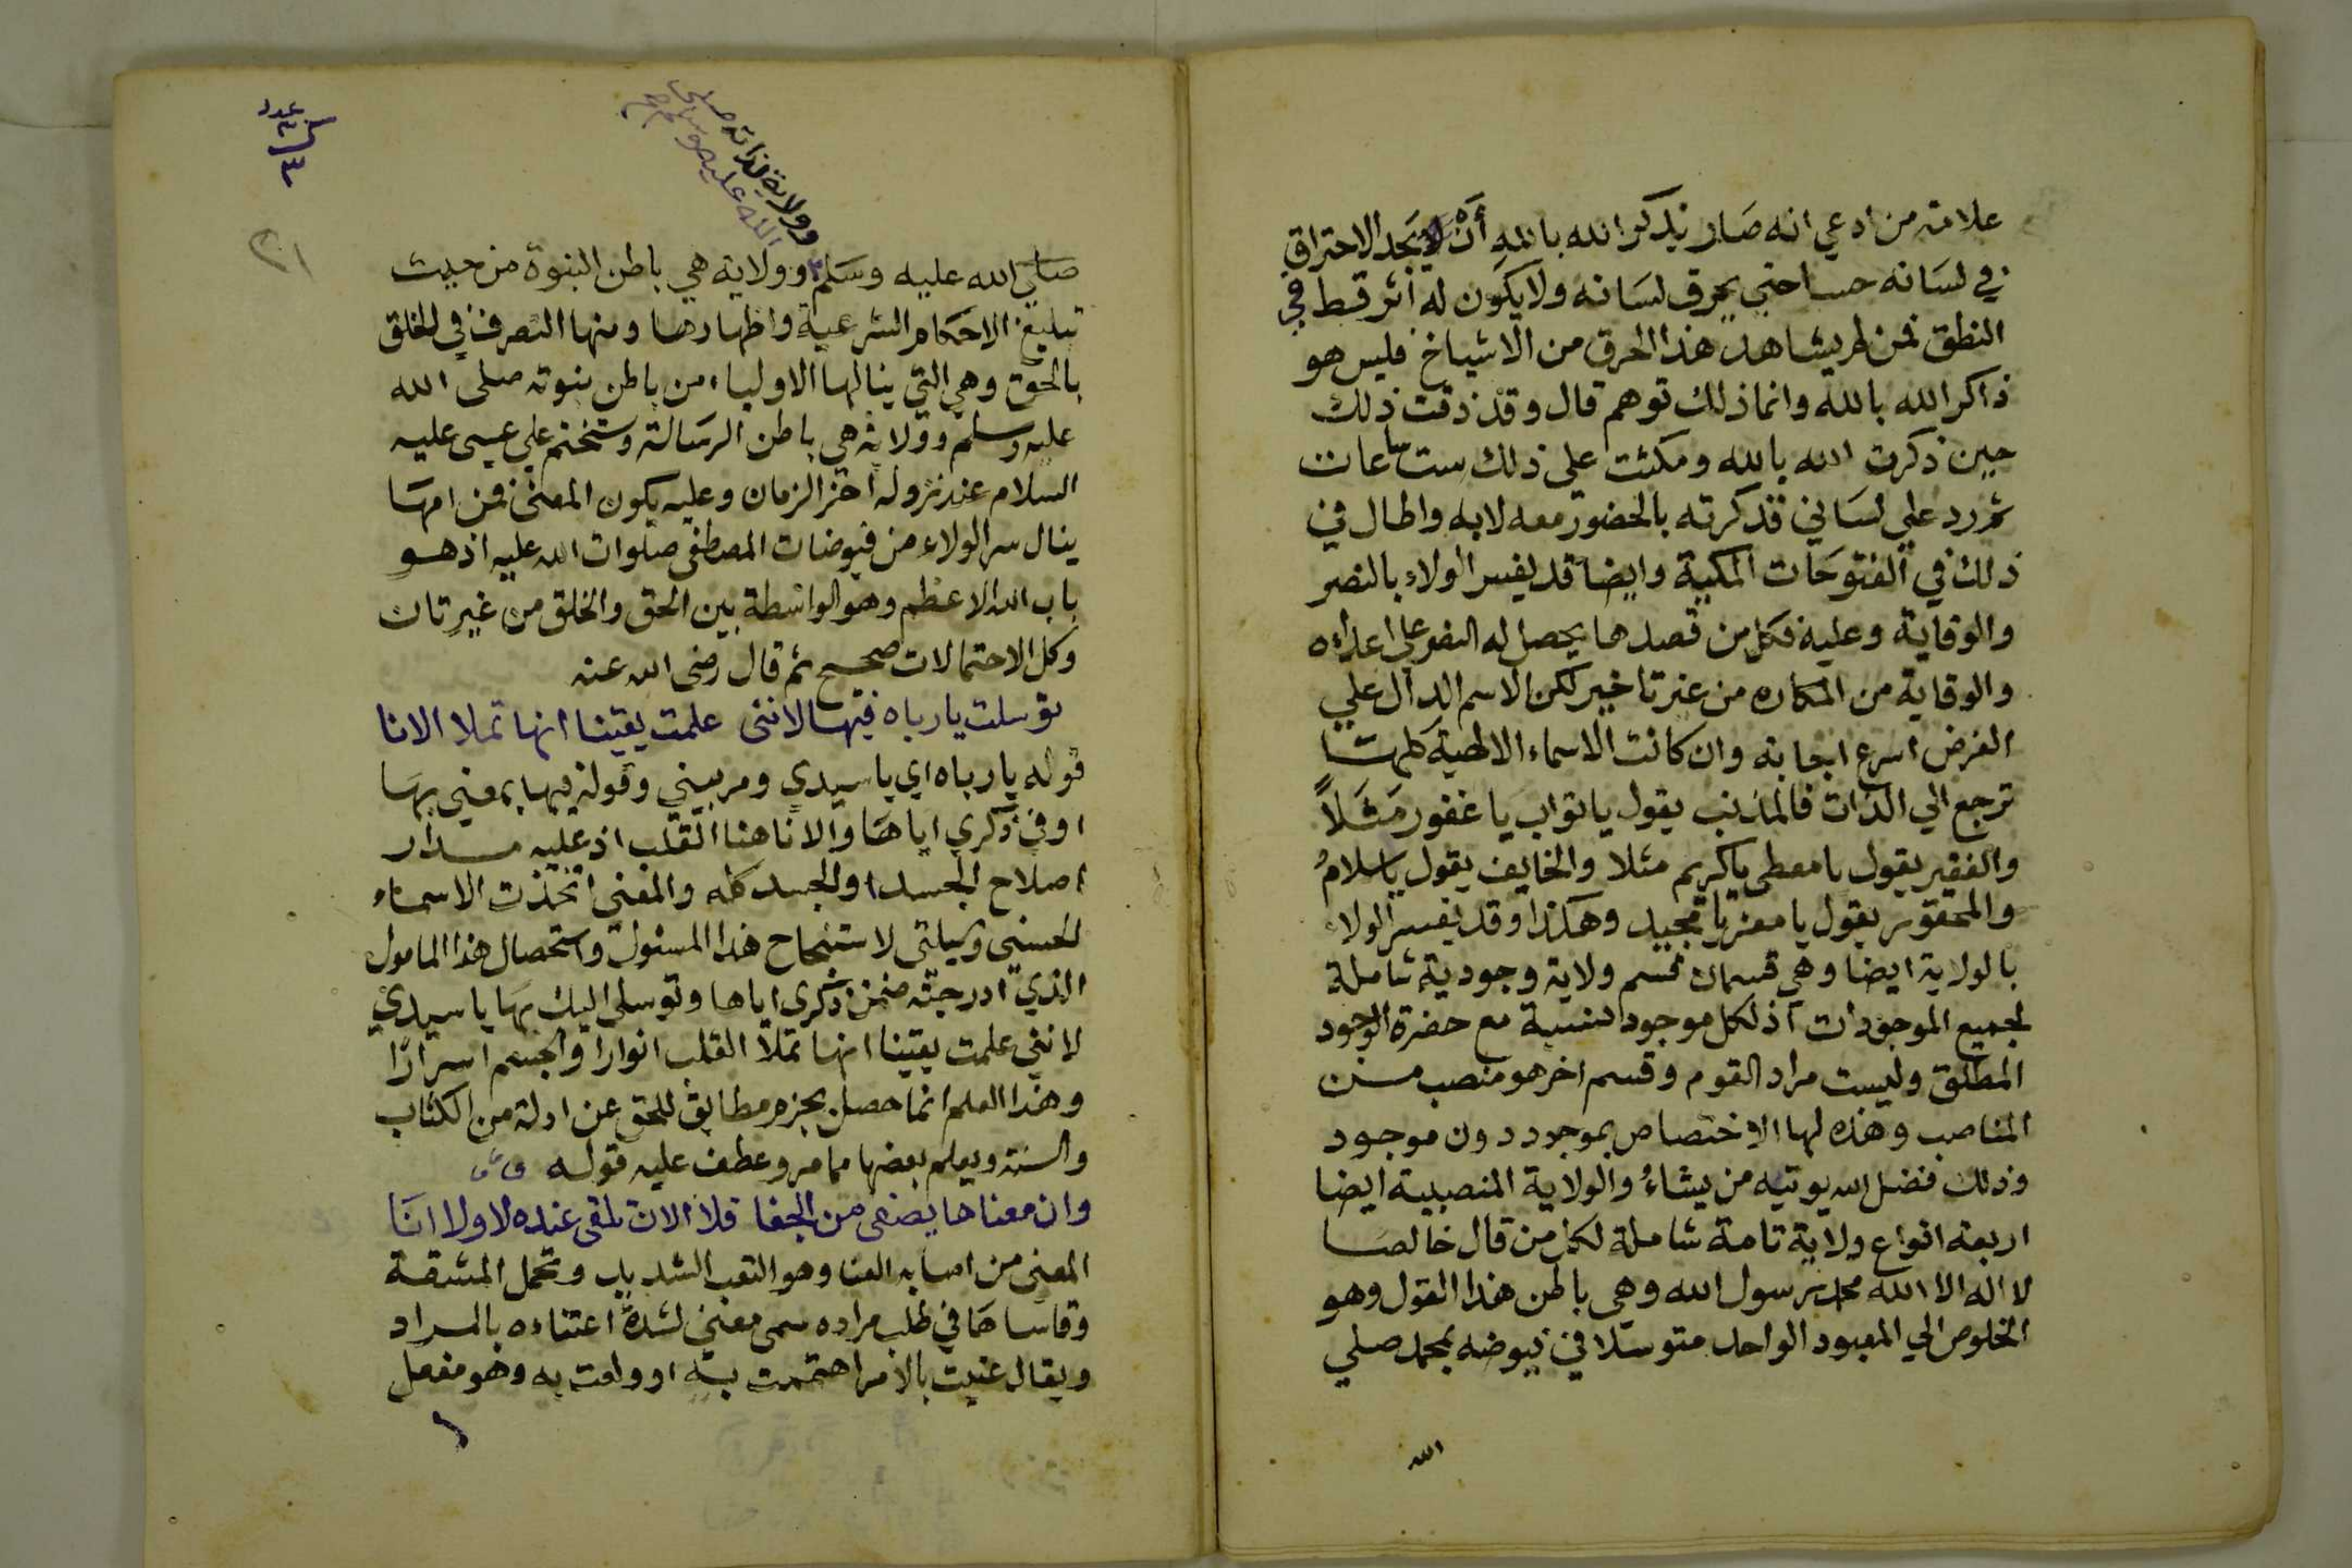 علامة من ادعي انه صار يذكر الله بالله أن يجد الاحتراق
في لسانه حسا حتي يحرق لسانه ولا يكون له اثر قط في
النطق فمن لم يشاهد هذا الحرق من الاشياخ فليس هو
ذاكر الله بالله وانما ذلك توهم قال وقد ذقت ذلك
حين ذكرت الله بالله ومكثت علي ذلك ست ساعات
ثم رد علي لساني فذكرته بالحضور معه لا به واطال في
ذلك في الفتوحات المكية وايضا قد يفسر الولاء بالنصر
والوقاية وعليه فكل من قصدها يحصل له النصر علي اعداءه
والوقاية من المكاره من غير تاخير لكن الاسم الدال علي
الغرض اسرع اجابة وان كانت الاسماء الالهية كلها
ترجع الي الذات فالمذنب يقول يا تواب يا غفور مثلاً
والفقير يقول يا معطي يا كريم مثلا والخايف يقول يا سلامُ
والمحقور يقول يا معز يا مجيد وهكذا وقد يفسر الولاء
بالولاية ايضا وهي قسمان قسم ولاية وجودية شاملة
لجميع الموجودات اذ لكل موجود نسبة مع حضرة الوجود
المطلق وليست مراد القوم وقسم اخر هو منصب من
المناصب وهذه لها الاختصاص بموجود دون موجود
وذلك فضل الله يوتيه من يشاءُ والولاية المنصبية ايضا
اربعة انواع ولاية تامة شاملة لكل من قال خالصا
لا اله الا الله محمد رسول الله وهي باطن هذا القول وهو
الخلوص الي المعبود الواحد متوسلا في فيوضه بمحمد صلي
الله
عدد
٣
٢١
وولاية لذاته صلى
الله عليه وسلم صح
صلي الله عليه وسلم وولاية هي باطن النبوة من حيث
تبليغ الاحكام الشرعية واظهارها ومنها التصرف في الخلق
بالحق وهي التي ينالها الاولياء من باطن نبوته صلى الله
عليه وسلم وولاية هي باطن الرسالة وستختم علي عيسى عليه
السلام عند نزوله اخر الزمان وعليه يكون المعنى فمن امها
ينال سر الولاء من فيوضات المصطفى صلوات الله عليه اذ هو
باب الله الاعظم وهو الواسطة بين الحق والخلق من غير ثان
وكل الاحتمالات صحيح ثم قال رضى الله عنه
توسلت يا رباه فيها لانني علمت يقينا انها تملا الانا
قوله يا رباه اي يا سيدي ومربيني وقوله فيها بمعني بها
او في ذكري اياها والانا هنا القلب اذ عليه مدار
اصلاح الجسد او الجسد كله والمعنى اتخذت الاسماء
الحسني وسيلتي لاستنجاح هذا المسئول واستحصال هذا المامول
الذي ادرجته ضمن ذكرى اياها وتوسلي اليك بها يا سيدي
لانني علمت يقينا انها تملأ القلب انوارا والجسم اسرارًا
وهذا العلم انما حصل بجزم مطابق للحق عن ادلة من الكتاب
والسنة ويعلم بعضها مما مر وعطف عليه قوله
وان معناها يصفى من الجفا فلا الان تلقى عنده لا ولا انَا
المعنى من اصابه العنا وهو التعب الشديد وتحمل المشقة
وقاساها في طلب مراده سمى معني لشدة اعتناءه بالمراد
ويقال عنيت بالامر اهتممت به او ولعت به وهو مفعل